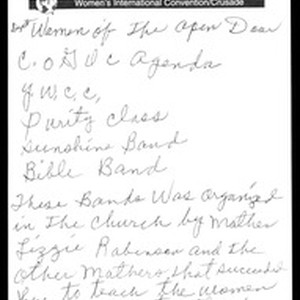 Women's International Convention/Crusade
Women of The Open Door
C.O.G.I.C Agenda
Y.W.C.C,
Purity Class
Sunshine Band
Bible Band
These Bands Was Organized
in The Church by Mother
Lizzie Robinson and the
other Mothers, that succeeded
to teach the women